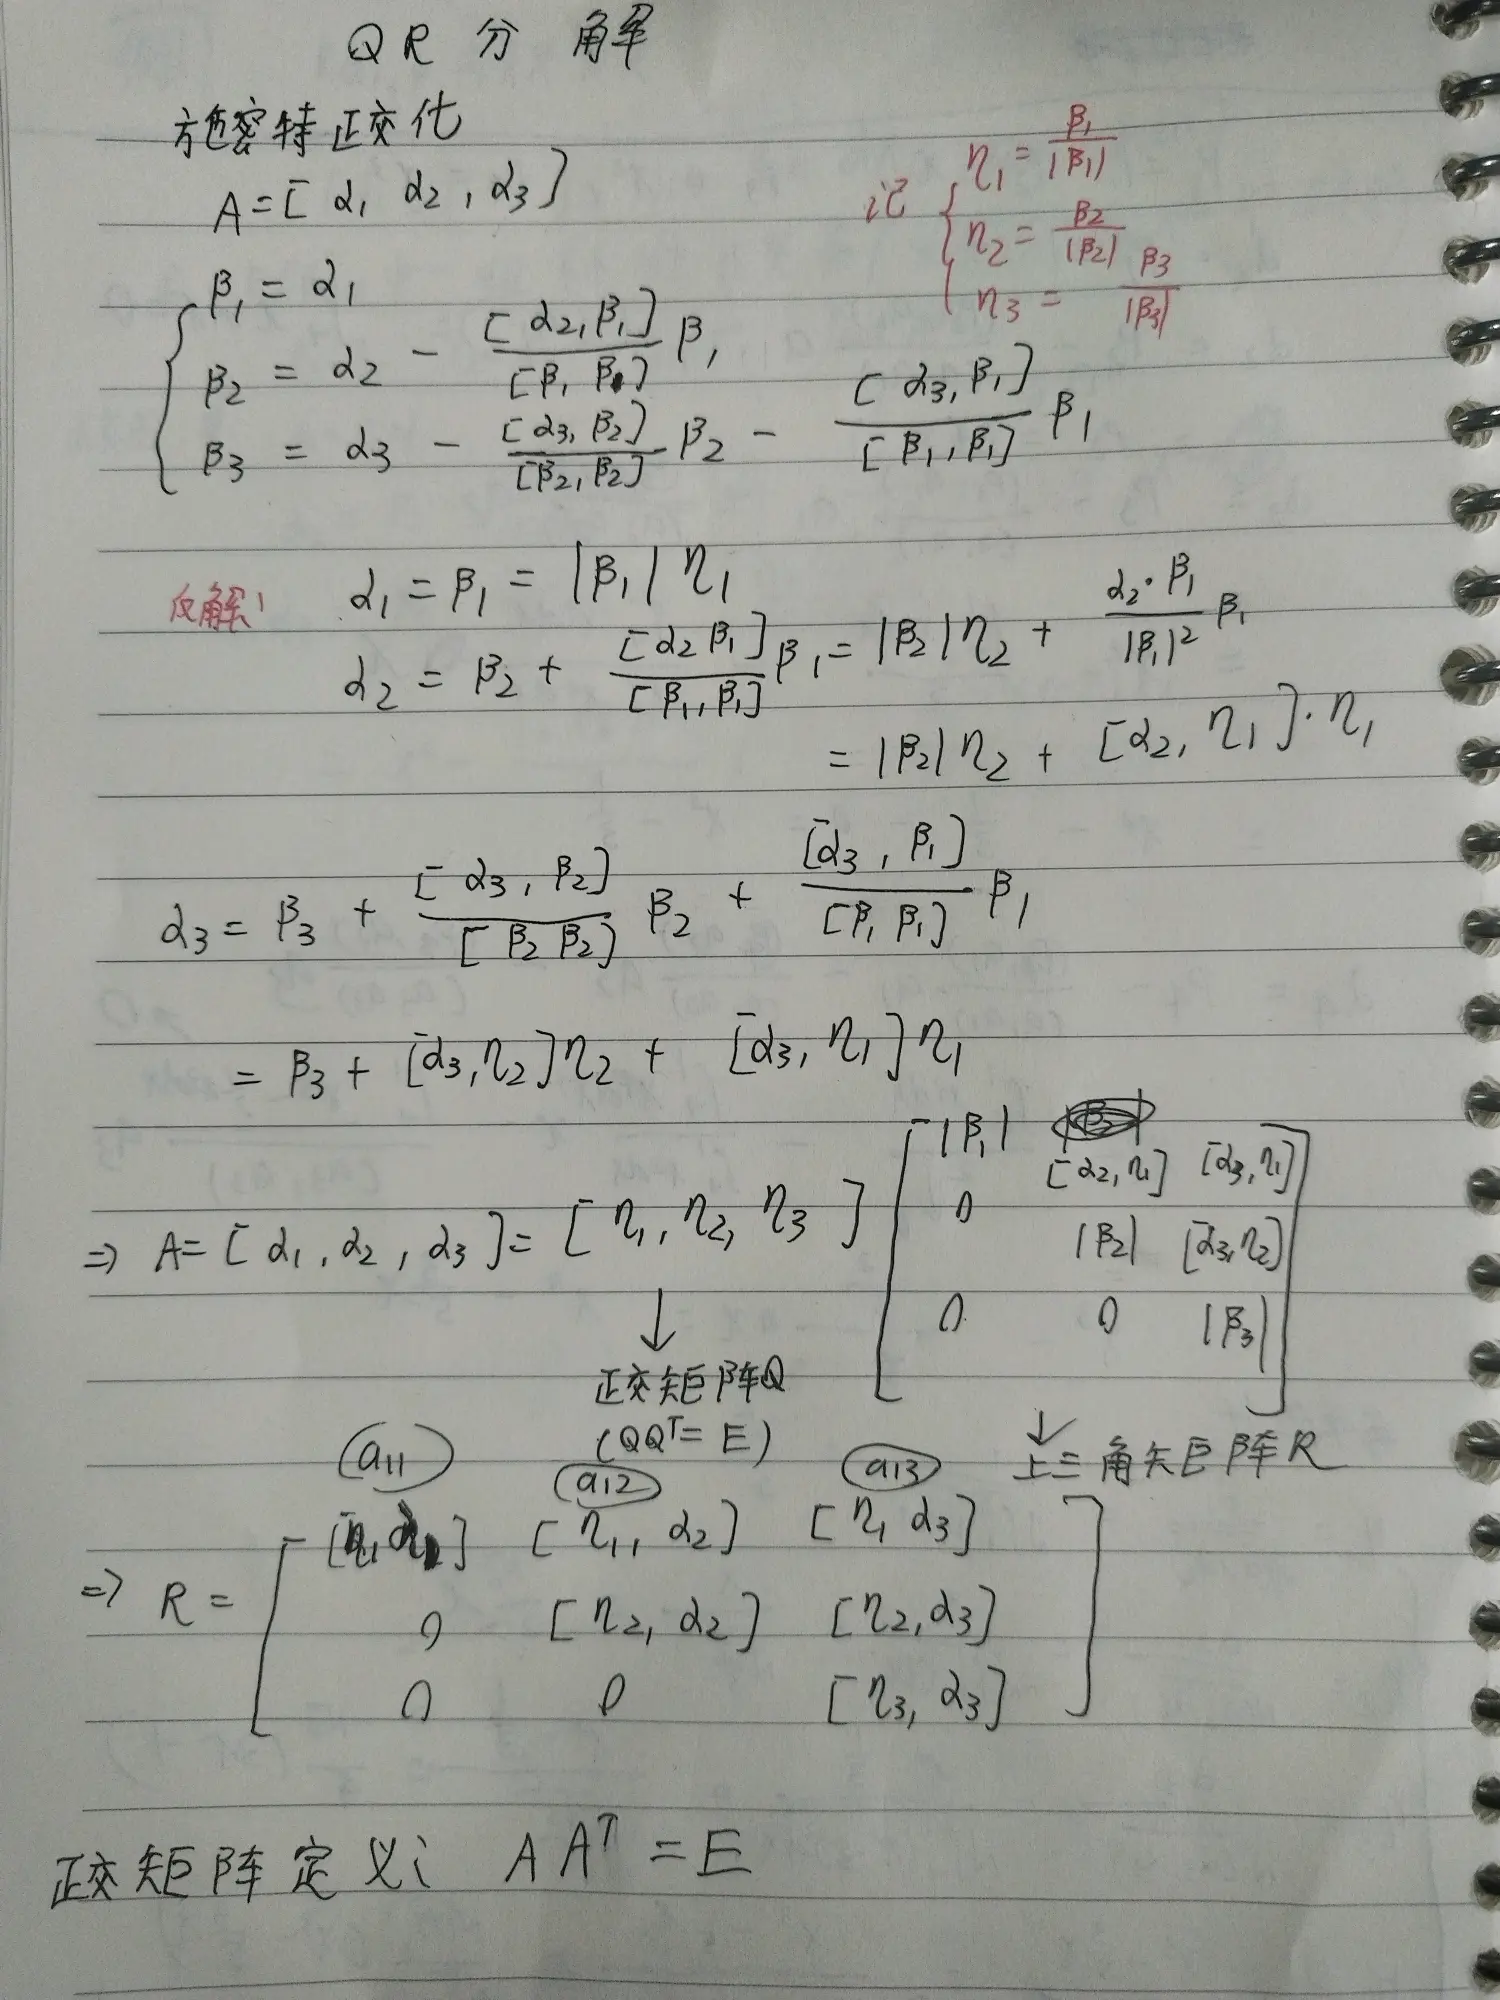 QR分解
施密特正交化
A=[α1 α2, α3]
记 { η1 = β1/|β1|
η2 = β2/|β2|
η3 = β3/|β3|
{ β1 = α1
β2 = α2 - [α2,β1]/[β1 β1] β1
β3 = α3 - [α3,β2]/[β2,β2] β2 - [α3,β1]/[β1,β1] β1
反解: α1 = β1 = |β1| η1
α2 = β2 + [α2 β1]/[β1,β1] β1 = |β2|η2 + α2·β1/|β1|² β1
= |β2|η2 + [α2, η1]·η1
α3 = β3 + [α3, β2]/[β2 β2] β2 + [α3, β1]/[β1 β1] β1
= β3 + [α3,η2]η2 + [α3, η1]η1
⇒ A=[α1, α2, α3] = [η1, η2, η3] [ |β1| [α2,η1] [α3,η1]
0 |β2| [α3,η2]
0 0 |β3| ]
↓ 正交矩阵Q
(QQᵀ= E)
↓ 上三角矩阵R
a11 a12 a13
⇒ R = [ [η1 α1] [η1, α2] [η1 α3]
0 [η2, α2] [η2,α3]
0 0 [η3, α3] ]
正交矩阵定义: AAᵀ = E